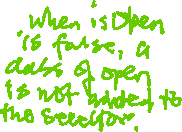 When isOpen
is false, a
class of open
is not added to
the selector.